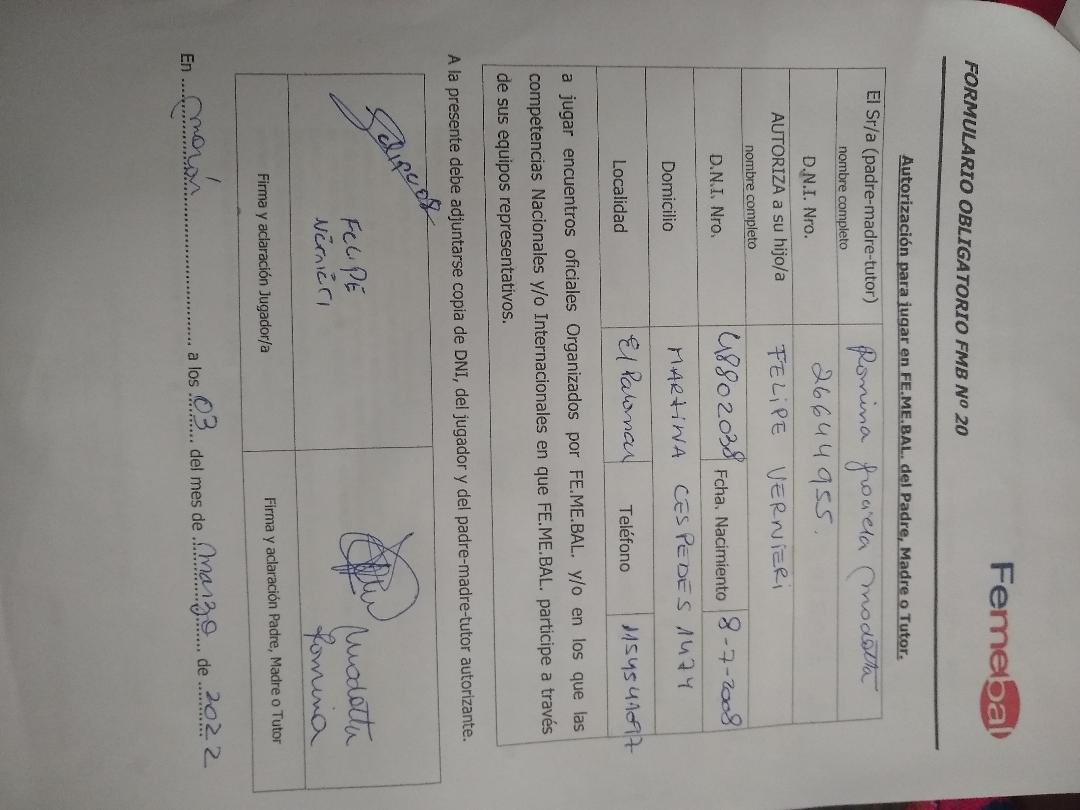 FORMULARIO OBLIGATORIO FMB Nº 20
Femebal
Autorización para jugar en FE.ME.BAL. del Padre, Madre o Tutor.
El Sr/a (padre-madre-tutor) nombre completo Romina Modotta
D.N.I. Nro. 26644955.
AUTORIZA a su hijo/a nombre completo FELIPE VERNIERI
D.N.I. Nro. 48802038 Fcha. Nacimiento 8-7-2008
Domicilio MARTINA CESPEDES 1474
Localidad El Palomar Teléfono
a jugar encuentros oficiales Organizados por FE.ME.BAL. y/o en los que las
competencias Nacionales y/o Internacionales en que FE.ME.BAL. participe a través
de sus equipos representativos.
A la presente debe adjuntarse copia de DNI, del jugador y del padre-madre-tutor autorizante.
FELIPE
Modotta
Romina
Firma y aclaración Jugador/a
Firma y aclaración Padre, Madre o Tutor
En Morón a los 03 del mes de Marzo de 2022